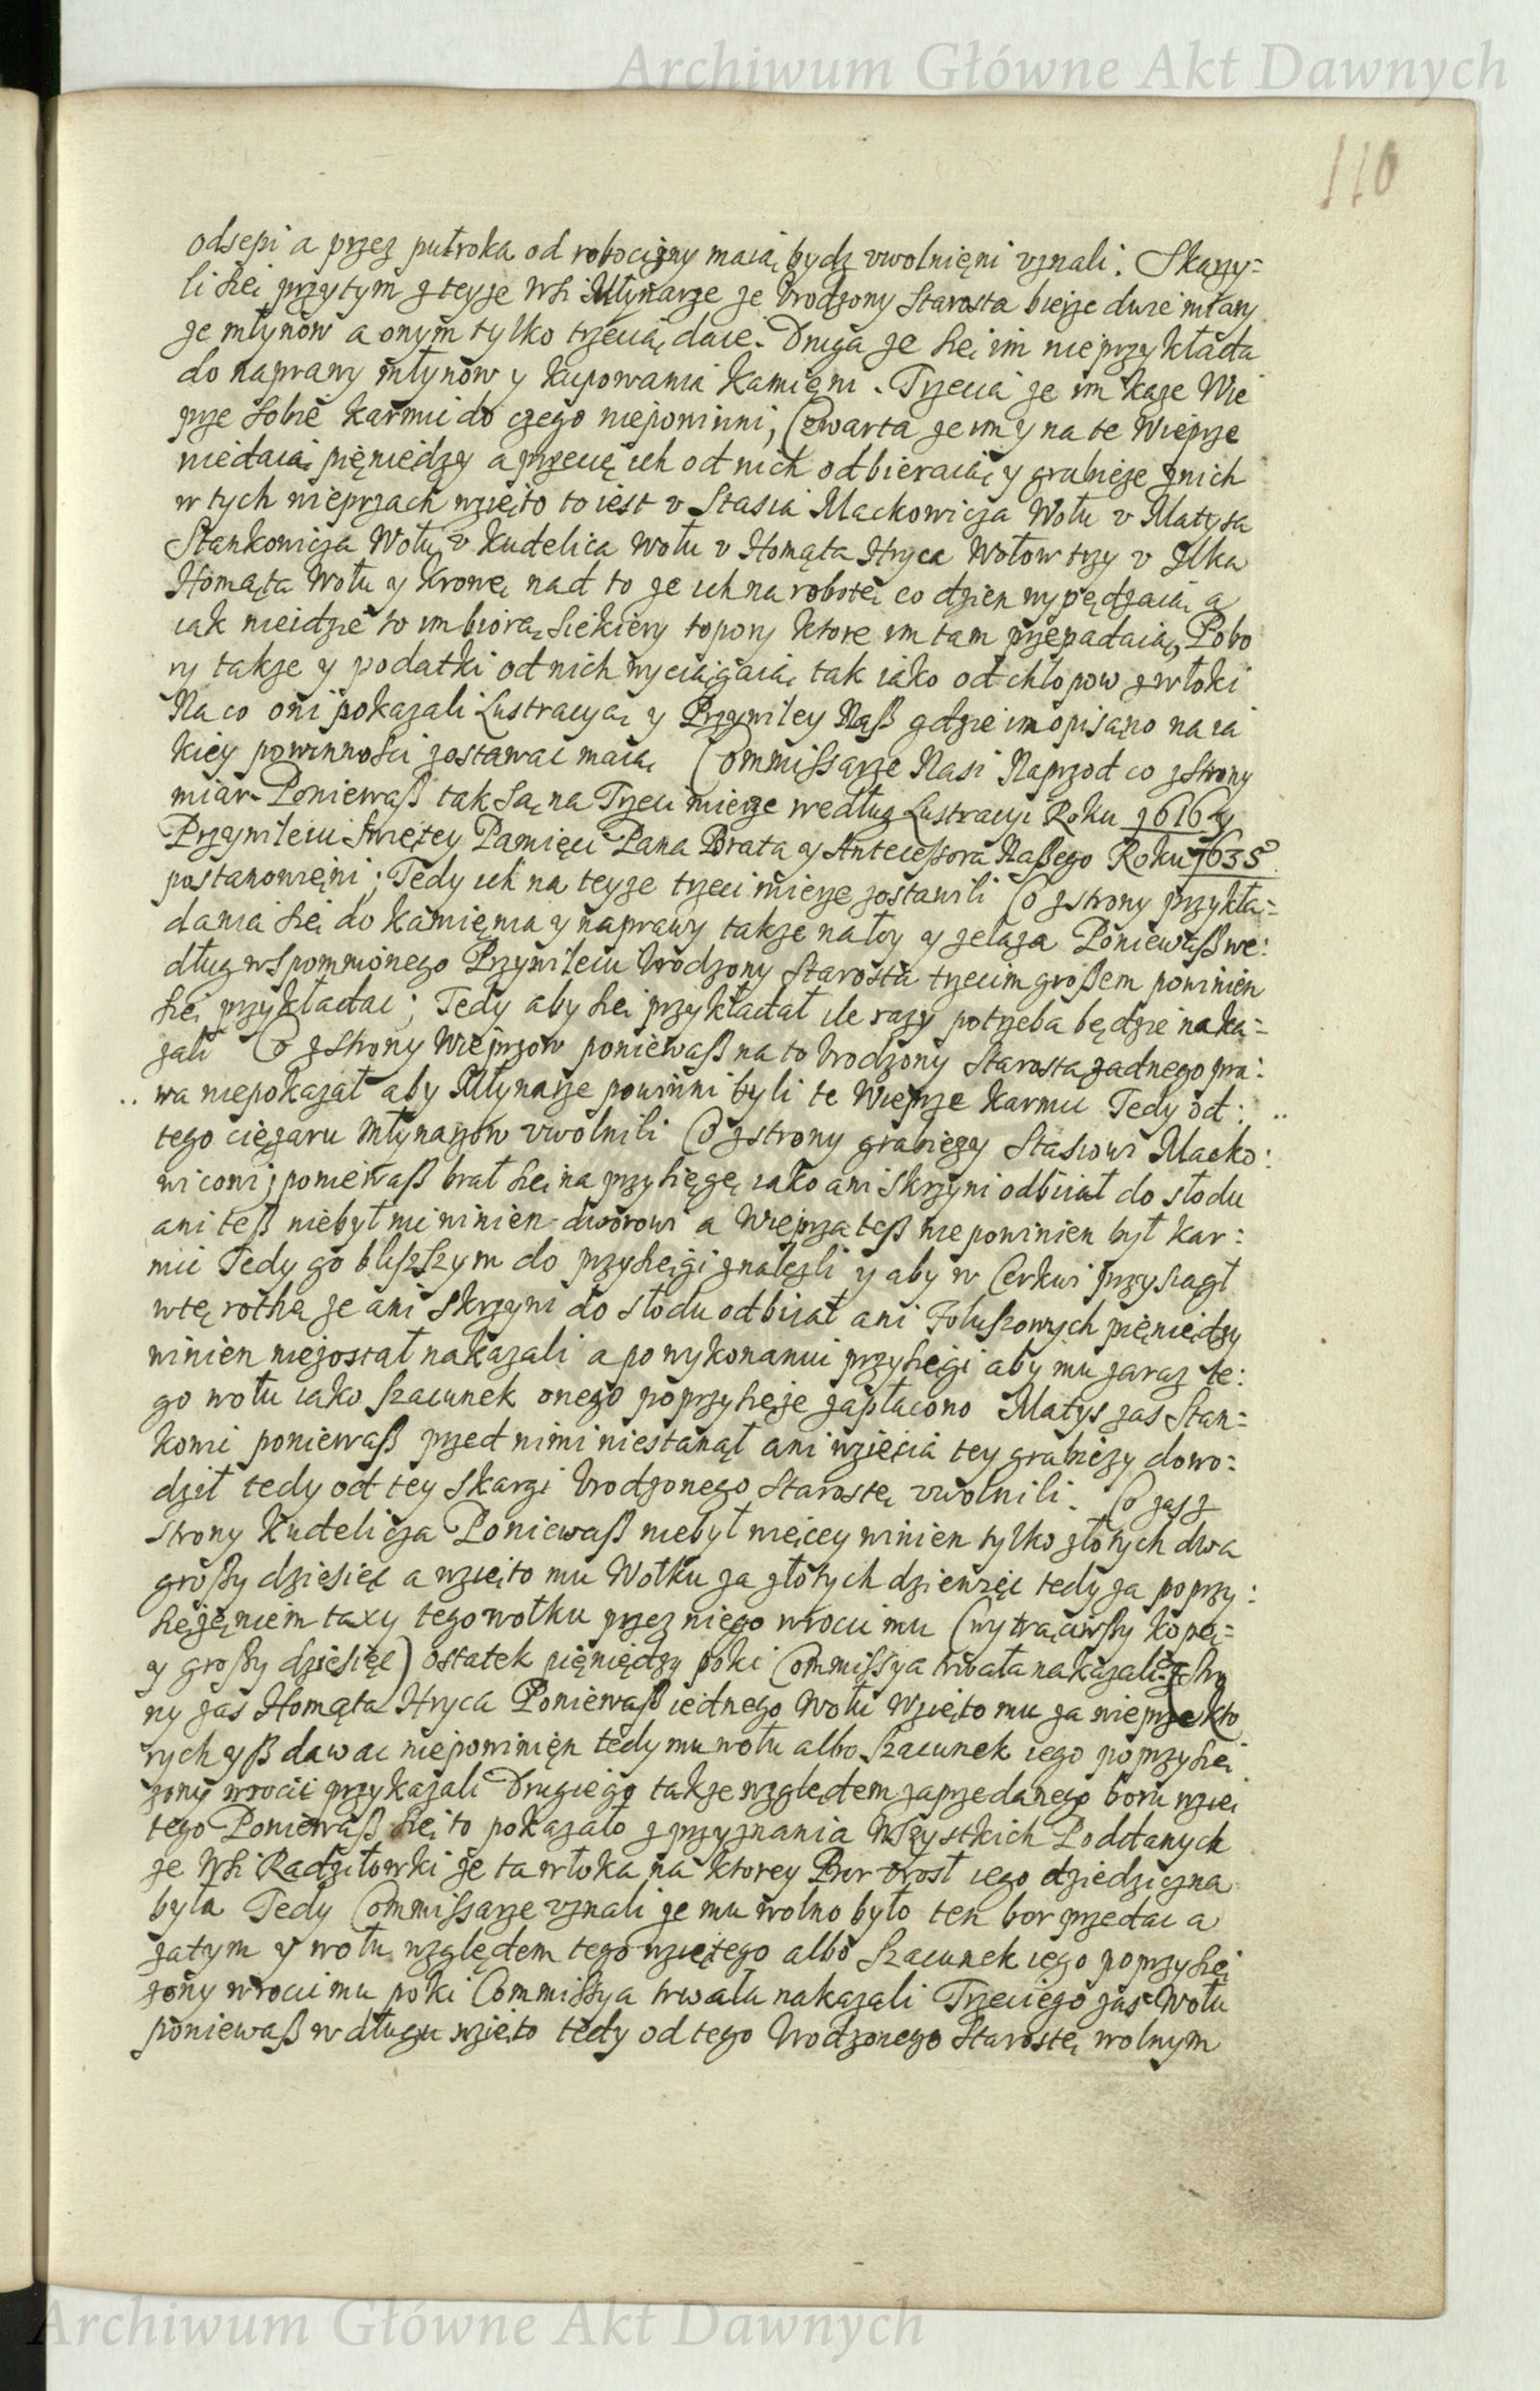 Archiwum Główne Akt Dawnych
110
odsepi a przez pułroka od robocizny maią bydz vwolnięni vznali. Skarzy=
li sięi przytym z teyze Wsi Młynarze ze Vrodzony Starosta bierze dwie miary
ze młynow a onym tylko trzecią daie. Druga ze sięi im nieprzykłada
do naprawy młynow y kupowania Kamięni. Trzecia ze im kaze Wie
prze sobie karmic do czego niepowinni, Czwarta ze im y na te Wieprze
niedaią pięniędzy a przecię ich od nich odbieraią y grabieze z nich
w tych wieprzach wzięto to iest v Stasia Mackowicza Wołu v Matysa
Stankowicza Wołu v Kudelica wołu v Homąta Hryca Wołow trzy v Ilka
Homąta Wołu y Krowę nad to ze ich na robotę co dzien wypędzaią a
iak nieidzie to im biorą siekiery topory ktore im tam przepadaią, Pobo
ry takze y podatki od nich wyciągaią tak iako od chłopow z włoki
Na co oni pokazali Lustracyą y Przywiley Nasz gdzie im opisano na ia
kiey powinnosci zostawac maią Commissarze Nasi Naprzod co z strony
miar Poniewasz tak są na Trzeci mierze według Lustracyi Roku 1616 y
Przywileiu Swiętey Pamięci Pana Brata y Antecessora Naszego Roku 1635
postanowięni; Tedy ich na teyze trzeci mierze zostawili Co z strony przykła=
dania się do kamięnia y naprawy takze nałoy y zelaza Poniewasz we:
dług wspomnionego Przywileiu Vrodzony Starosta trzecim groszem powinien
się przykładac; Tedy aby się przykładał ile razy potrzeba będzie naka=
zali Co z strony Wieprzow poniewasz na to Vrodzony Starosta zadnego pra:
wa niepokazał aby Młynarze powinni byli te Wieprze karmic Tedy od:
tego cięzaru Młynarzow vwolnili Co z strony grabiezy Stasiowi Macko:
wicowi; poniewasz brał się na przysięgę iako ani skrzyni odbirał do słodu
ani tesz niebył nic winien dworowi a Wieprza tesz nie powinien był kar:
mic Tedy go bliszszym do przysięgi znalezli y aby w Cerkwi przysiągł
w tę rothę ze ani skrzyni do słodu odbirał ani Foluszowych pięniędzy
winien niezostał nakazali a po wykonaniu przysięgi aby mu zaraz te:
go wołu iako szacunek onego poprzysięze zapłacono Matys zas Stan=
kowic poniewasz przed nimi niestanął ani wzięcia tey grabiezy dowo=
dził tedy od tey skargi Vrodzonego Starostę vwolnili. Co zas z
strony Kudelicza Poniewasz niebył więcey winien tylko złotych dwa
groszy dziesięć a wzięto mu Wołku za złotych dziewięć tedy za poprzy:
sięzęniem taxy tego wołku przez niego wrocic mu (wytrąciwszy kopę=
y groszy dziesięć) ostatek pięniędzy poki Commissya trwała nakazali z stro
ny zas Homąta Hryca Poniewasz iednego Wołu Wzięto mu za wieprze kto
rych ysz dawac niepowinięn tedy mu wołu albo szacunek iego poprzysię
zony wrocic przykazali Drugiego takze względem zaprzedanego boru wzię
tego Poniewasz się to pokazało z przyznania Wszystkich Poddanych
ze Wsi Radziłowki ze ta włoka na ktorey Bor vrosł iego dziedziczna
była Tedy Commissarze vznali ze mu wolno było ten bor przedac a
zatym y wołu względem tego wziętego albo szacunek iego poprzysię
zony wrocic mu poki Commissya trwała nakazali Trzeciego zas Wołu
poniewasz w długu wzięto tedy od tego Vrodzonego Starostę wolnym
Archiwum Główne Akt Dawnych